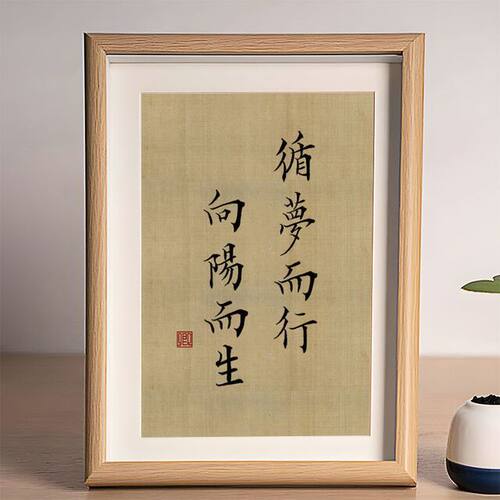 循夢而行
向陽而生